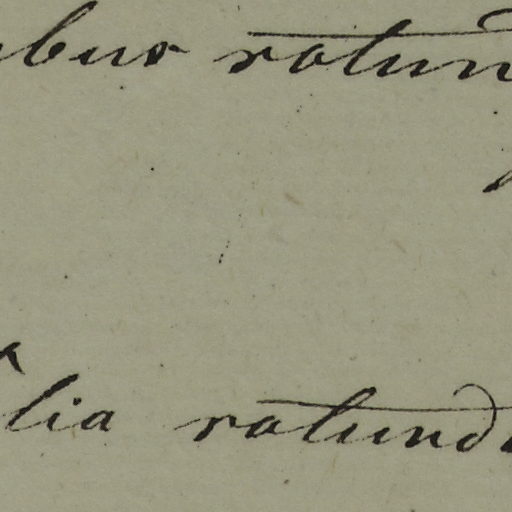 bus rotun
lia rotund